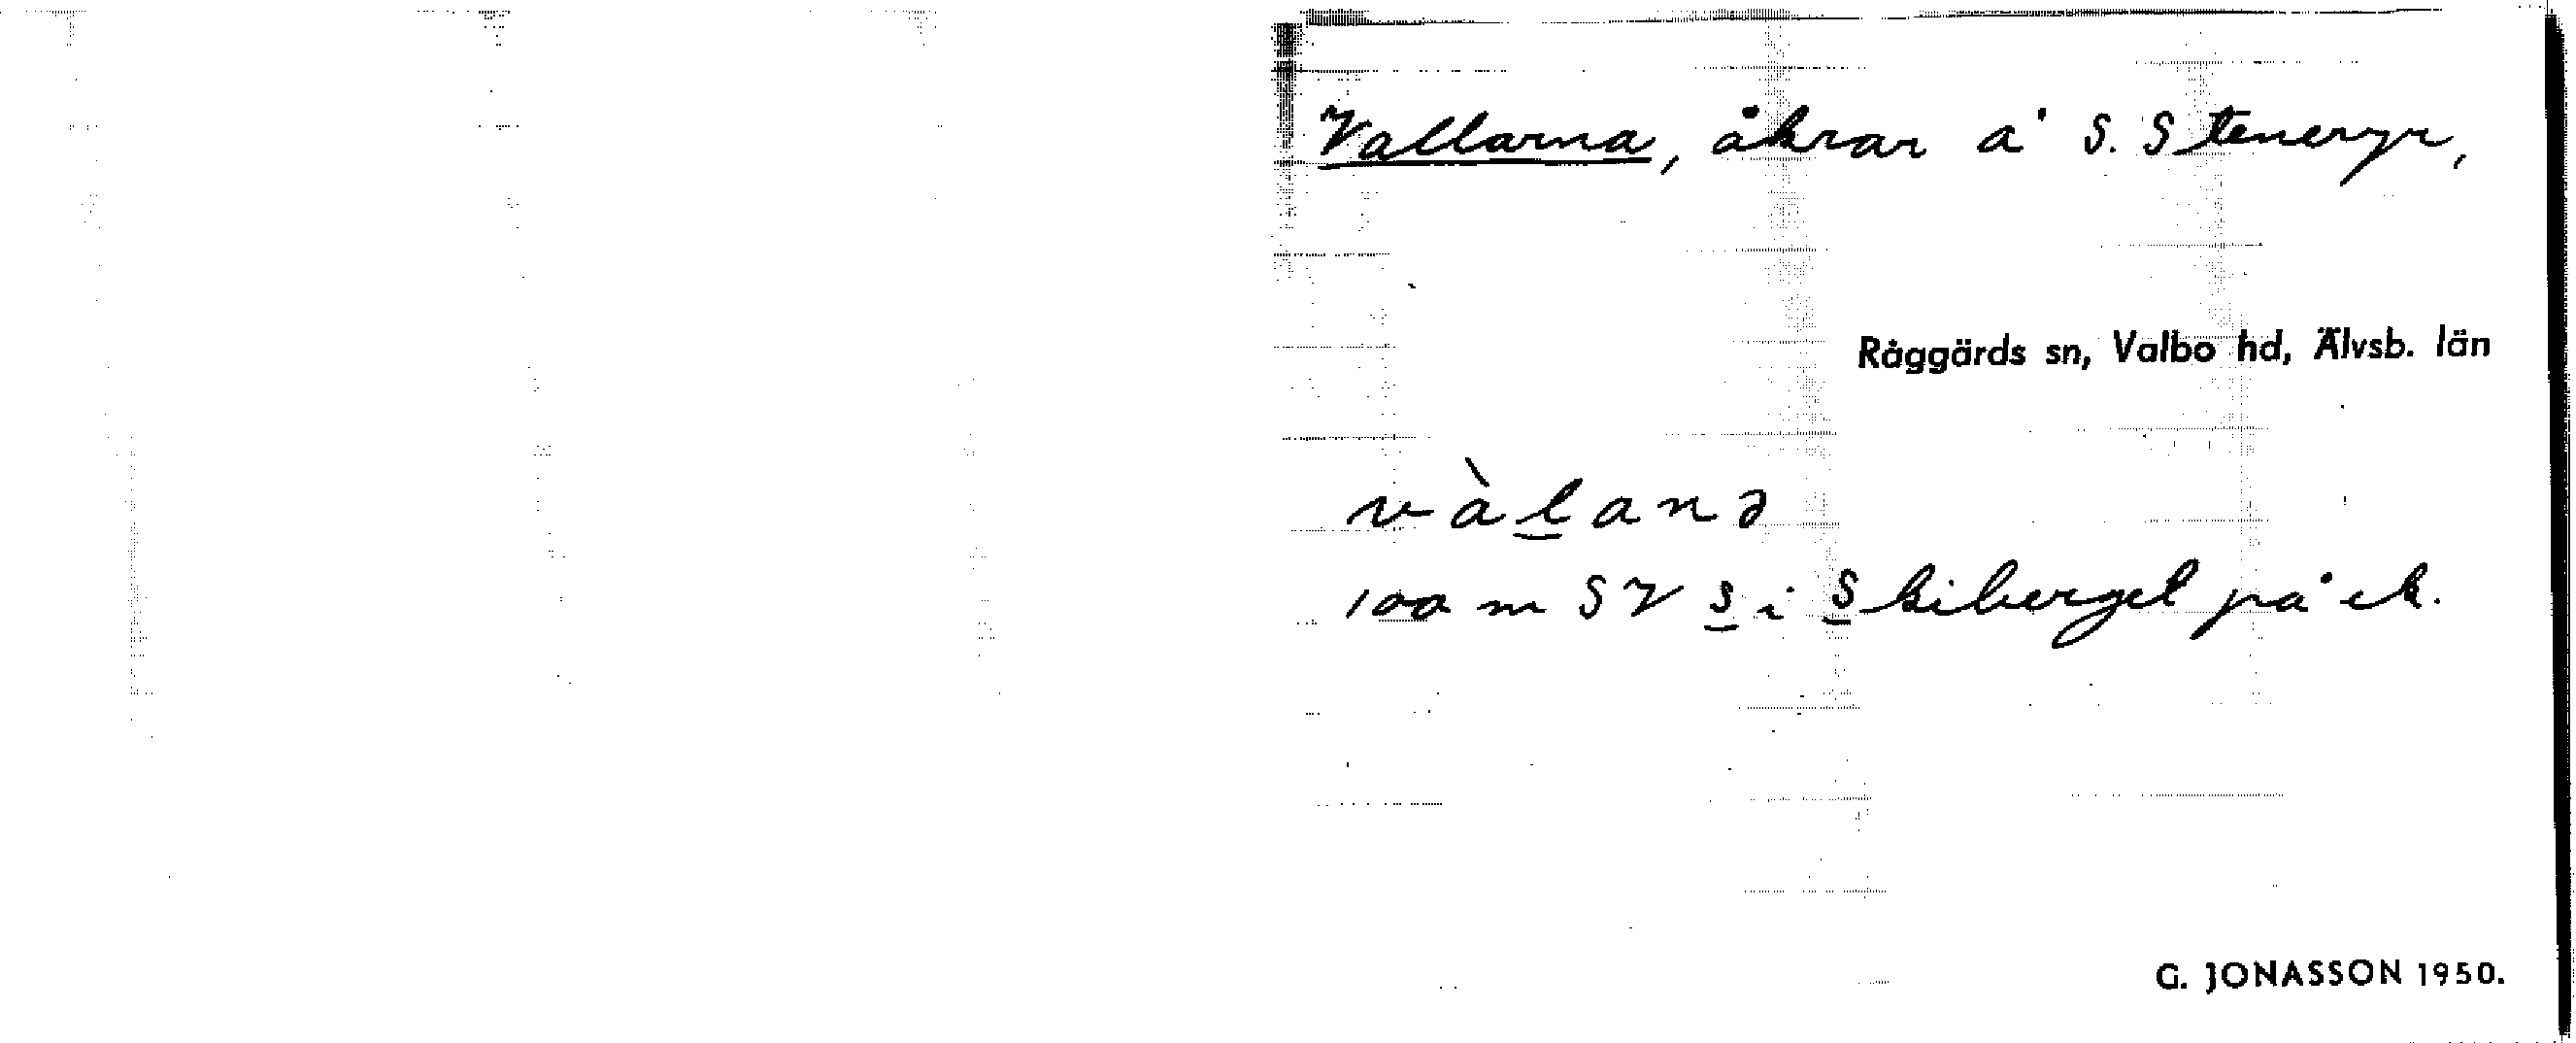 Vallarna, åkrar å S. Steneryr,
Råggärds sn, Valbo hd, Älvsb. län
vàlanə
100 m SV s i Skiberget på ek.
G. JONASSON 1950.